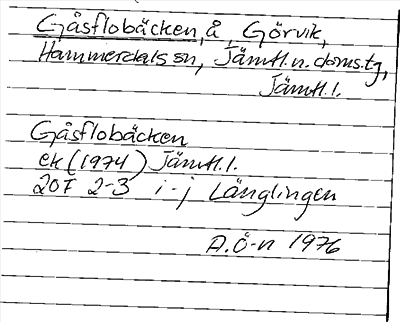 Gåsflobäcken, å, Görvik,
Hammerdals sn, Jämtl. n. doms.tg,
Jämtl. l.
Gåsflobäcken
ek (1974) Jämtl. l.
20F 2-3 i-j Länglingen
A.Ö-n 1976